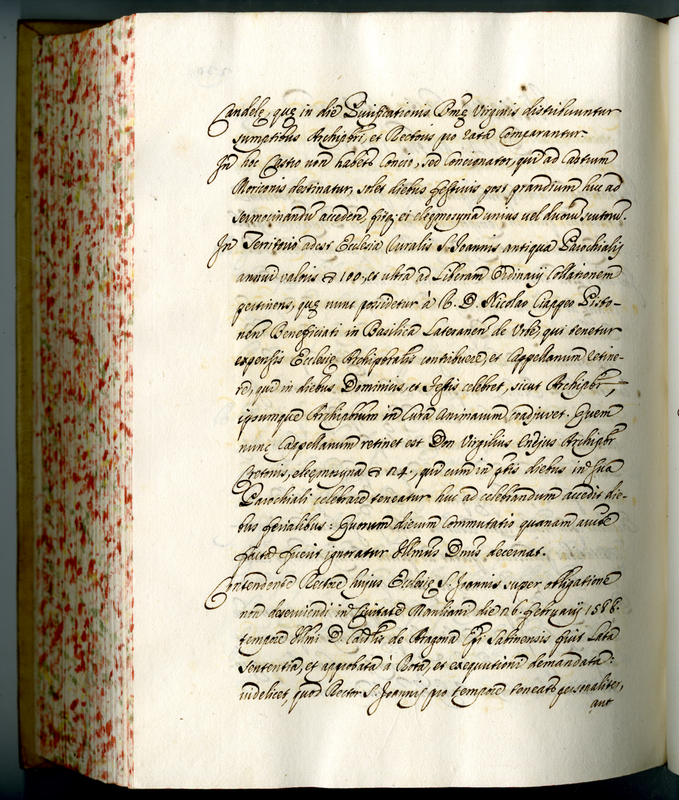 Candelę, quę in die Purificationis Bmę Virginis distribuuntur
sumptibus Archipbri, et Rectoris pro ratā Comparantur.
In hoc Castro non habetr Concio, sed Concionator, qui ad Cabtrum
Moriconis destinatur, solet diebus festivis post prandium huc ad
sermocinandū accedere, fitq; ei elęmosyna unius vel duorū scutorū.
In Territorio adest Ecclesia Curalis S. Joannis antiqua Parochialis
annui valoris 100, et ultra ad Liberam Ordinarij Collationem
pertinens, quę nunc possidetur à R. D. Nicolao Ciappeo Pisto-
nen Beneficiati in Basilica Lateranen de Urbe, qui tenetur
expensis Ecclesię Archipbralis contribuere, et Cappellanum retine-
re, qui in diebus Dominicis, et Festis celebret, sicut Archipbr,
ipsumque Archipbrum in Cura Animarum coadjuvet. Quem
nunc Cappellanum retinet est Don Virgilius Archipbr
Cretonis, elęmosyna 24., qui cum in ptis diebus in sua
Parochiali celebrare teneatur huc ad celebrandum accedit die-
bus ferialibus: Quorum dierum commutatio quanam auctte
facta fuerit ignoratur Illmus Dnus decernat.
Contendente Rectore hujus Ecclesię S. Joannis super obligatione
non deserviendi in die 26. Februarij 1586.
tempore Illmi D. Cardlis de Aragona Epi Sabinensis fuit Lata
Sententia, et approbata à Rota, et exequutioni demandata:
videlicet, quod Rector S. Joannis pro tempore teneatr personaliter,
aut